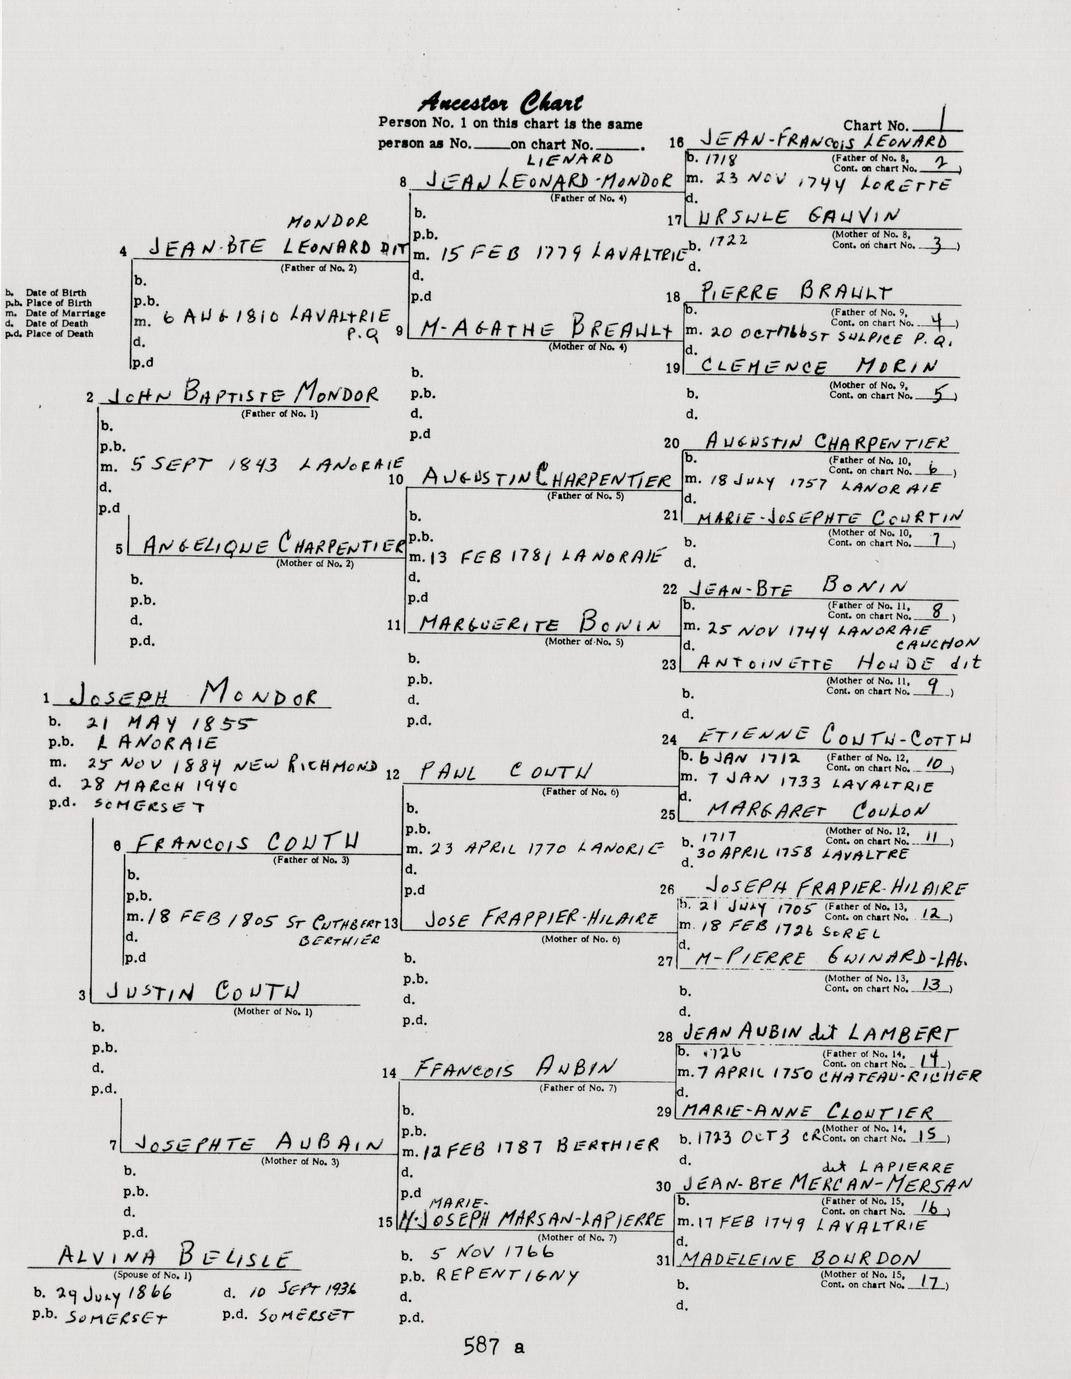 Ancestor Chart
Person No. 1 on this chart is the same
person as No. on chart No. .
Chart No. 1
b. Date of Birth
p.b. Place of Birth
m. Date of Marriage
d. Date of Death
p.d. Place of Death
1 JOSEPH MONDOR
b. 21 MAY 1855
p.b. LANORAIE
m. 25 NOV 1884 NEW RICHMOND
d. 28 MARCH 1940
p.d. SOMERSET
2 JOHN BAPTISTE MONDOR
(Father of No. 1)
b.
p.b.
m. 5 SEPT 1843 LANORAIE
d.
p.d
3 JUSTIN COUTU
(Mother of No. 1)
b.
p.b.
d.
p.d.
MONDOR
4 JEAN-BTE LEONARD DIT
(Father of No. 2)
b.
p.b.
m. 6 AUG 1810 LAVALTRIE
P.Q
d.
p.d
5 ANGELIQUE CHARPENTIER
(Mother of No. 2)
b.
p.b.
d.
p.d.
6 FRANCOIS COUTU
(Father of No. 3)
b.
p.b.
m. 18 FEB 1805 ST CUTHBERT
BERTHIER
d.
p.d
7 JOSEPHTE AUBAIN
(Mother of No. 3)
b.
p.b.
d.
p.d.
ALVINA BELISLE
(Spouse of No. 1)
b. 29 JULY 1866 d. 10 SEPT 1936
p.b. SOMERSET p.d. SOMERSET
LIENARD
8 JEAN LEONARD-MONDOR
(Father of No. 4)
b.
p.b.
m. 15 FEB 1779 LAVALTRIE
d.
p.d
9 M-AGATHE BREAULT
(Mother of No. 4)
b.
p.b.
d.
p.d
10 AUGUSTIN CHARPENTIER
(Father of No. 5)
b.
p.b.
m. 13 FEB 1781 LANORAIE
d.
p.d
11 MARGUERITE BONIN
(Mother of No. 5)
b.
p.b.
d.
p.d.
12 PAUL COUTU
(Father of No. 6)
b.
p.b.
m. 23 APRIL 1770 LANORIE
d.
p.d
13 JOSE FRAPPIER-HILAIRE
(Mother of No. 6)
b.
p.b.
d.
p.d.
14 FFANCOIS AUBIN
(Father of No. 7)
b.
p.b.
m. 12 FEB 1787 BERTHIER
d.
p.d
MARIE-
15 M-JOSEPH MARSAN-LAPIERRE
(Mother of No. 7)
b. 5 NOV 1766
p.b. REPENTIGNY
d.
p.d.
16 JEAN-FRANCOIS LEONARD
b. 1718 (Father of No. 8,
Cont. on chart No. 2)
m. 23 NOV 1744 LORETTE
d.
17 URSULE GAUVIN
b. 1722 (Mother of No. 8,
Cont. on chart No. 3)
d.
18 PIERRE BRAULT
b. (Father of No. 9,
Cont. on chart No. 4)
m. 20 OCT 1766 ST SULPICE P.Q.
d.
19 CLEMENCE MORIN
(Mother of No. 9,
b. Cont. on chart No. 5)
d.
20 AUGUSTIN CHARPENTIER
b. (Father of No. 10,
Cont. on chart No. 6)
m. 18 JULY 1757 LANORAIE
d.
21 MARIE-JOSEPHTE COURTIN
(Mother of No. 10,
b. Cont. on chart No. 7)
d.
22 JEAN-BTE BONIN
b. (Father of No. 11,
Cont. on chart No. 8)
m. 25 NOV 1744 LANORAIE
d. CAUCHON
23 ANTOINETTE HOUDE dit
(Mother of No. 11,
b. Cont. on chart No. 9)
d.
24 ETIENNE COUTU-COTTU
b. 6 JAN 1712 (Father of No. 12,
Cont. on chart No. 10)
m. 7 JAN 1733 LAVALTRIE
d.
25 MARGARET COULON
b. 1717 (Mother of No. 12,
Cont. on chart No. 11)
d. 30 APRIL 1758 LAVALTRE
26 JOSEPH FRAPIER-HILAIRE
b. 21 JULY 1705 (Father of No. 13,
Cont. on chart No. 12)
m. 18 FEB 1726 SOREL
d.
27 M-PIERRE GUINARD-LAG.
(Mother of No. 13,
b. Cont. on chart No. 13)
d.
28 JEAN AUBIN dit LAMBERT
b. 1726 (Father of No. 14,
Cont. on chart No. 14)
m. 7 APRIL 1750 CHATEAU-RICHER
d.
29 MARIE-ANNE CLOUTIER
(Mother of No. 14,
b. 1723 OCT 3 CR Cont. on chart No. 15)
d.
dit LAPIERRE
30 JEAN-BTE MERCAN-MERSAN
b. (Father of No. 15,
Cont. on chart No. 16)
m. 17 FEB 1749 LAVALTRIE
d.
31 MADELEINE BOURDON
(Mother of No. 15,
b. Cont. on chart No. 17)
d.
587 a